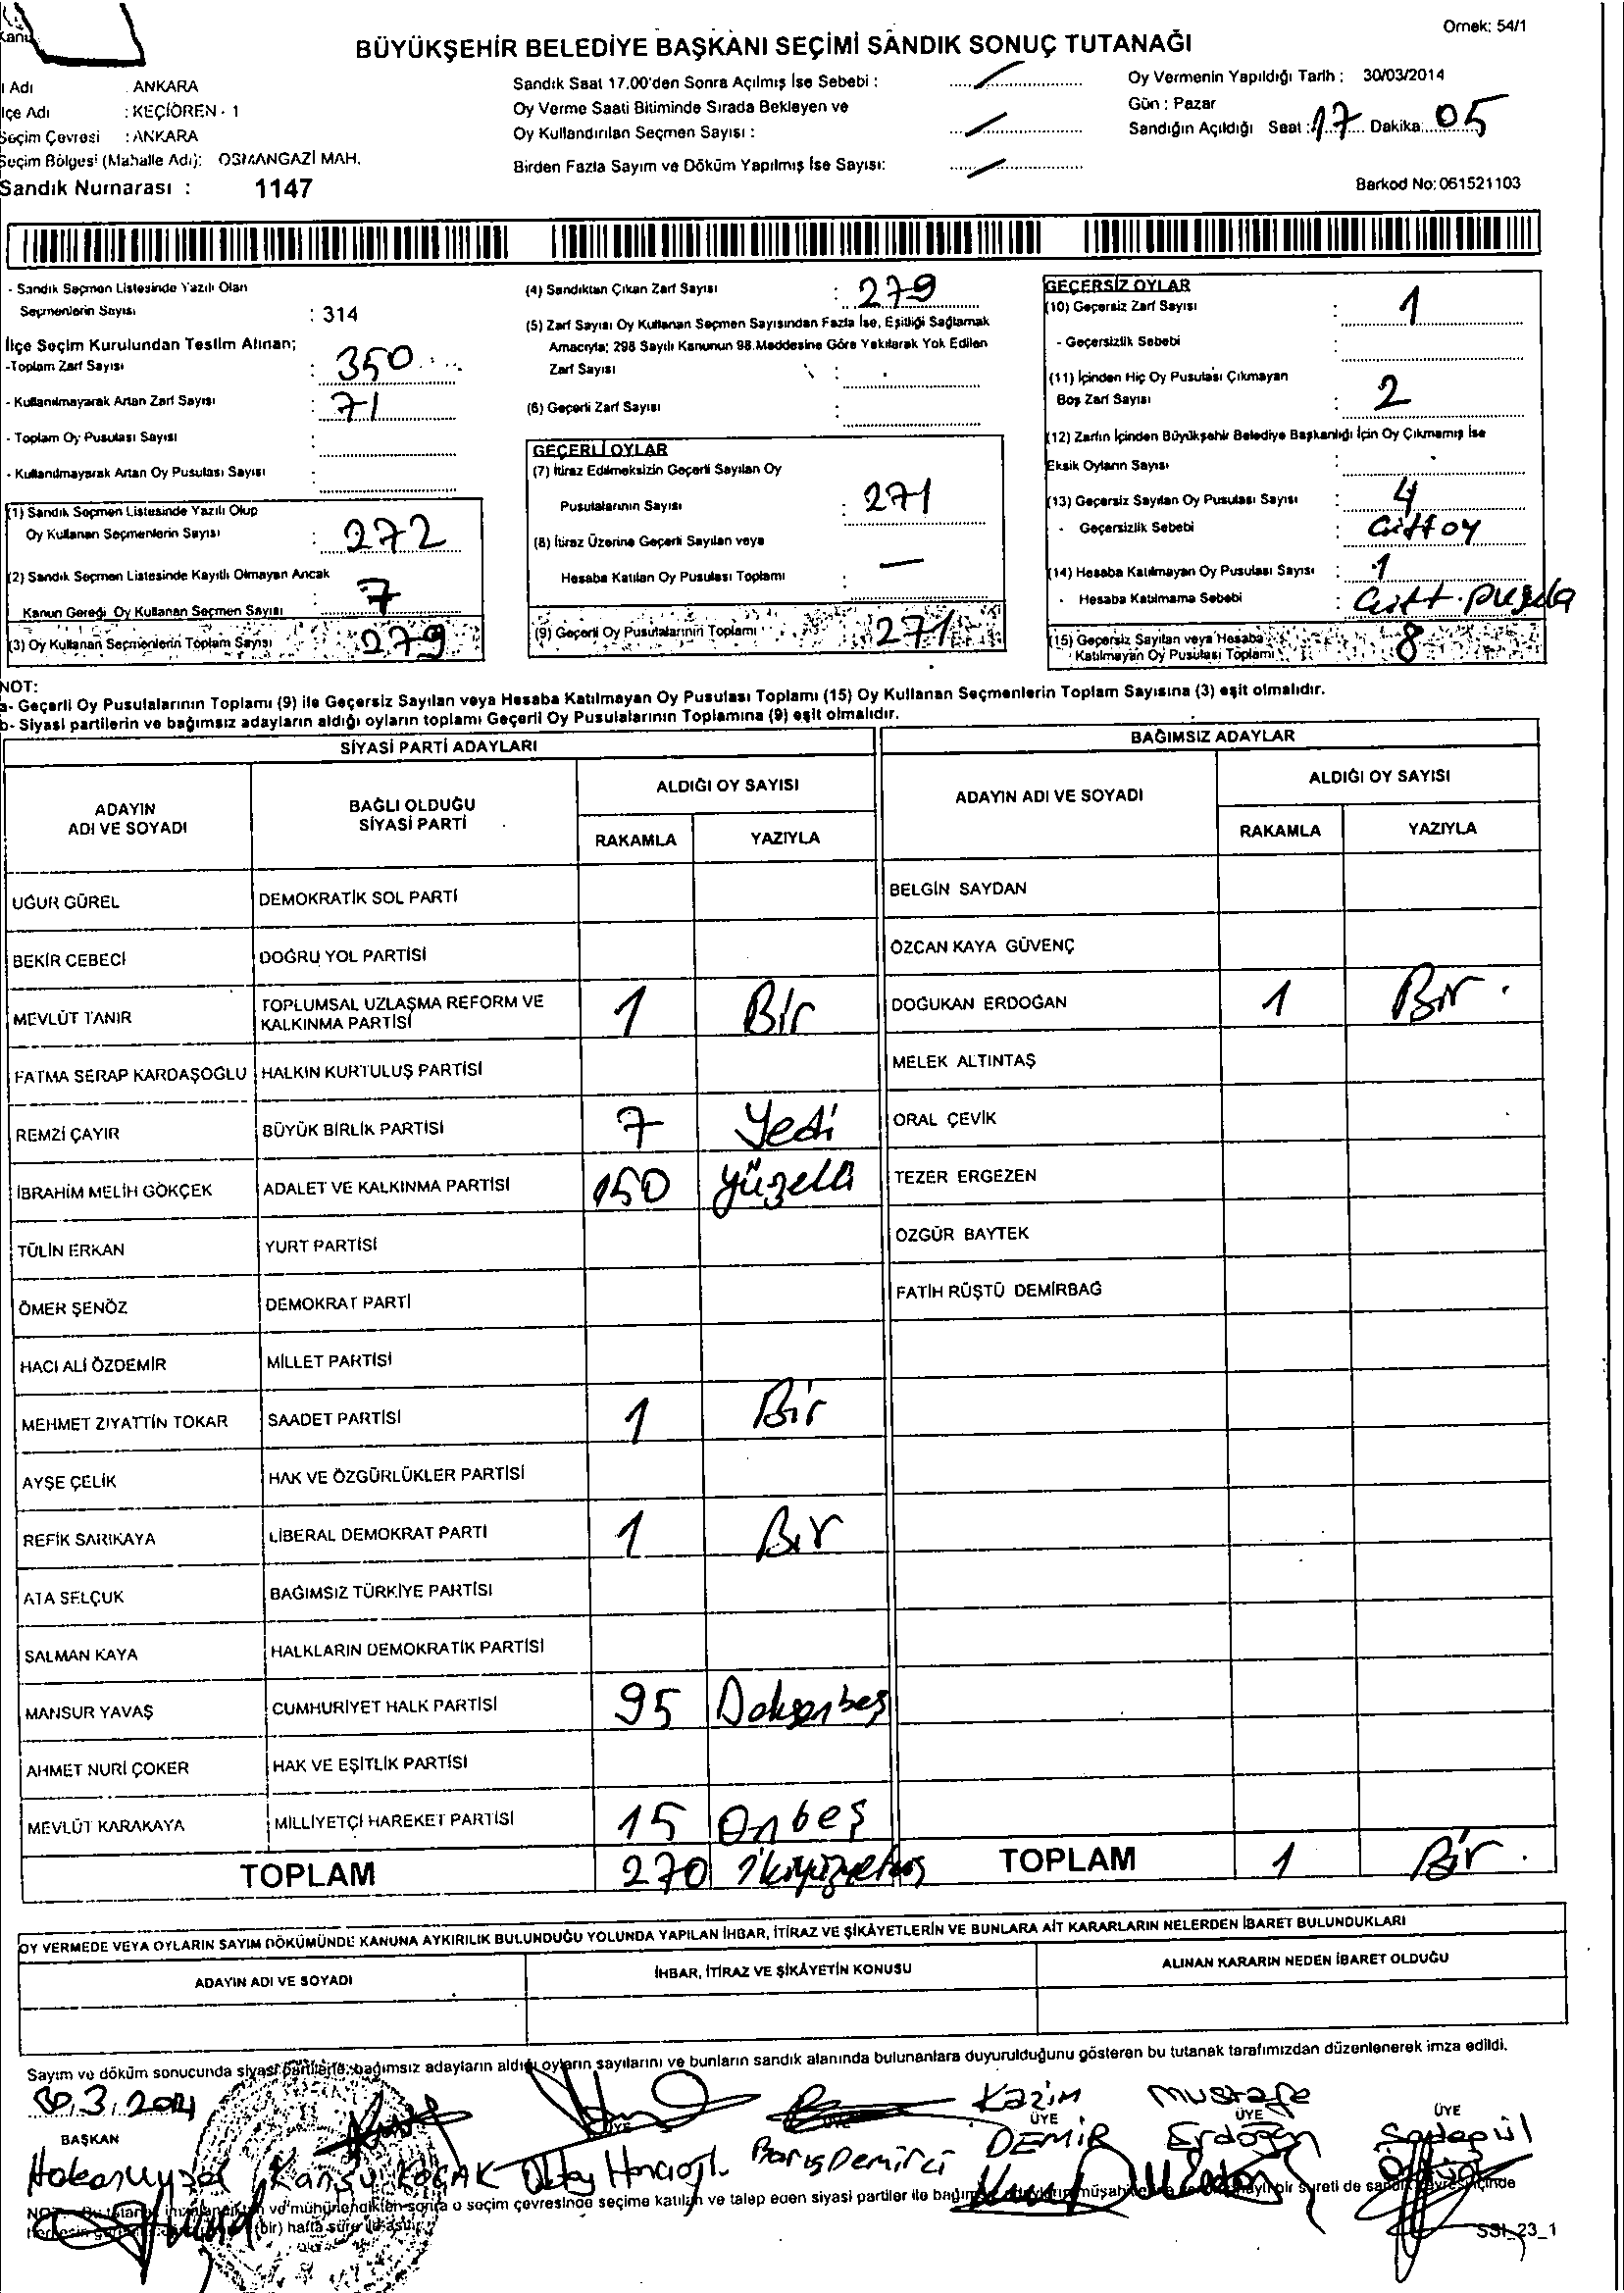 Örnek: 54/1
BÜYÜKŞEHİR BELEDİYE BAŞKANI SEÇİMİ SANDIK SONUÇ TUTANAĞI
Adı : ANKARA
lçe Adı : KEÇİÖREN - 1
Seçim Çevresi : ANKARA
Seçim Bölgesi (Mahalle Adı): OSMANGAZİ MAH.
Sandık Numarası : 1147
Sandık Saat 17.00'den Sonra Açılmış İse Sebebi :
Oy Verme Saati Bitiminde Sırada Bekleyen ve
Oy Kullandırılan Seçmen Sayısı :
Birden Fazla Sayım ve Döküm Yapılmış İse Sayısı:
Oy Vermenin Yapıldığı Tarih : 30/03/2014
Gün : Pazar
Sandığın Açıldığı Saat : 17 Dakika: 05
Barkod No: 061521103
- Sandık Seçmen Listesinde Yazılı Olan
Seçmenlerin Sayısı : 314
İlçe Seçim Kurulundan Teslim Alınan;
-Toplam Zarf Sayısı : 350
- Kullanılmayarak Artan Zarf Sayısı : 71
- Toplam Oy Pusulası Sayısı :
- Kullanılmayarak Artan Oy Pusulası Sayısı :
(1) Sandık Seçmen Listesinde Yazılı Olup
Oy Kullanan Seçmenlerin Sayısı : 272
(2) Sandık Seçmen Listesinde Kayıtlı Olmayan Ancak
Kanun Gereği Oy Kullanan Seçmen Sayısı : 7
(3) Oy Kullanan Seçmenlerin Toplam Sayısı : 279
(4) Sandıktan Çıkan Zarf Sayısı : 279
(5) Zarf Sayısı Oy Kullanan Seçmen Sayısından Fazla İse, Eşitliği Sağlamak
Amacıyla; 298 Sayılı Kanunun 98.Maddesine Göre Yakılarak Yok Edilen
Zarf Sayısı :
(6) Geçerli Zarf Sayısı :
GEÇERLİ OYLAR
(7) İtiraz Edilmeksizin Geçerli Sayılan Oy
Pusulalarının Sayısı : 271
(8) İtiraz Üzerine Geçerli Sayılan veya
Hesaba Katılan Oy Pusulası Toplamı : —
(9) Geçerli Oy Pusulalarının Toplamı : 271
GEÇERSİZ OYLAR
(10) Geçersiz Zarf Sayısı : 1
- Geçersizlik Sebebi :
(11) İçinden Hiç Oy Pusulası Çıkmayan
Boş Zarf Sayısı : 2
(12) Zarfın İçinden Büyükşehir Belediye Başkanlığı İçin Oy Çıkmamış İse
Eksik Oyların Sayısı :
(13) Geçersiz Sayılan Oy Pusulası Sayısı : 4
- Geçersizlik Sebebi : Çift oy
(14) Hesaba Katılmayan Oy Pusulası Sayısı : 1
- Hesaba Katılmama Sebebi : Çift pusula
(15) Geçersiz Sayılan veya Hesaba
Katılmayan Oy Pusulası Toplamı : 8
NOT:
a- Geçerli Oy Pusulalarının Toplamı (9) ile Geçersiz Sayılan veya Hesaba Katılmayan Oy Pusulası Toplamı (15) Oy Kullanan Seçmenlerin Toplam Sayısına (3) eşit olmalıdır.
b- Siyasi partilerin ve bağımsız adayların aldığı oyların toplamı Geçerli Oy Pusulalarının Toplamına (9) eşit olmalıdır.
SİYASİ PARTİ ADAYLARI
ADAYIN ADI VE SOYADI BAĞLI OLDUĞU SİYASİ PARTİ ALDIĞI OY SAYISI
RAKAMLA YAZIYLA
UĞUR GÜREL DEMOKRATİK SOL PARTİ
BEKİR CEBECİ DOĞRU YOL PARTİSİ
MEVLÜT TANIR TOPLUMSAL UZLAŞMA REFORM VE KALKINMA PARTİSİ 1 Bir
FATMA SERAP KARDAŞOĞLU HALKIN KURTULUŞ PARTİSİ
REMZİ ÇAYIR BÜYÜK BİRLİK PARTİSİ 7 Yedi
İBRAHİM MELİH GÖKÇEK ADALET VE KALKINMA PARTİSİ 150 yüzelli
TÜLİN ERKAN YURT PARTİSİ
ÖMER ŞENÖZ DEMOKRAT PARTİ
HACI ALİ ÖZDEMİR MİLLET PARTİSİ
MEHMET ZİYATTİN TOKAR SAADET PARTİSİ 1 Bir
AYŞE ÇELİK HAK VE ÖZGÜRLÜKLER PARTİSİ
REFİK SARIKAYA LİBERAL DEMOKRAT PARTİ 1 Bir
ATA SELÇUK BAĞIMSIZ TÜRKİYE PARTİSİ
SALMAN KAYA HALKLARIN DEMOKRATİK PARTİSİ
MANSUR YAVAŞ CUMHURİYET HALK PARTİSİ 95 Doksanbeş
AHMET NURİ ÇOKER HAK VE EŞİTLİK PARTİSİ
MEVLÜT KARAKAYA MİLLİYETÇİ HAREKET PARTİSİ 15 Onbeş
TOPLAM 270 ikiyüzyetmiş
BAĞIMSIZ ADAYLAR
ADAYIN ADI VE SOYADI ALDIĞI OY SAYISI
RAKAMLA YAZIYLA
BELGİN SAYDAN
ÖZCAN KAYA GÜVENÇ
DOĞUKAN ERDOĞAN 1 Bir
MELEK ALTINTAŞ
ORAL ÇEVİK
TEZER ERGEZEN
ÖZGÜR BAYTEK
FATİH RÜŞTÜ DEMİRBAĞ
TOPLAM 1 Bir
OY VERMEDE VEYA OYLARIN SAYIM DÖKÜMÜNDE KANUNA AYKIRILIK BULUNDUĞU YOLUNDA YAPILAN İHBAR, İTİRAZ VE ŞİKÂYETLERİN VE BUNLARA AİT KARARLARIN NELERDEN İBARET BULUNDUKLARI
ADAYIN ADI VE SOYADI İHBAR, İTİRAZ VE ŞİKÂYETİN KONUSU ALINAN KARARIN NEDEN İBARET OLDUĞU
Sayım ve döküm sonucunda siyasi partilerle, bağımsız adayların aldığı oyların sayılarını ve bunların sandık alanında bulunanlara duyurulduğunu gösteren bu tutanak tarafımızdan düzenlenerek imza edildi.
30.3.2014
BAŞKAN ÜYE ÜYE ÜYE ÜYE
Kazim DEMİR
Mustafa Erdoğan
Barış Demirci
KOÇAK
ve mühürlendikten sonra o seçim çevresinde seçime katılan ve talep eden siyasi partiler ile
(bir) hafta süre ile asılır.
SSI_23_1